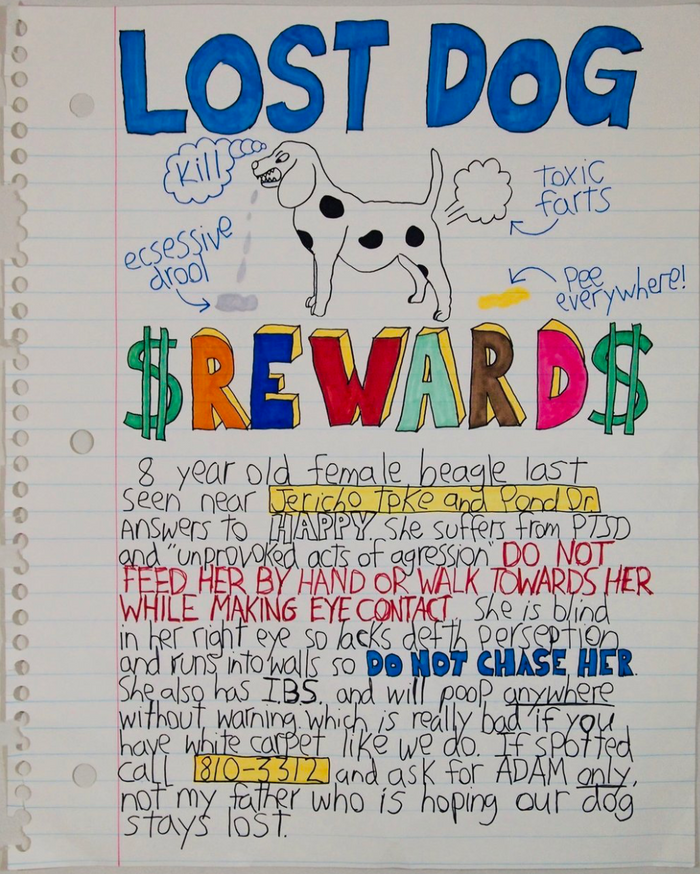 LOST DOG
Kill
toxic
farts
ecsessive
drool
Pee
everywhere!
$REWARD$
8 year old female beagle last
seen near Jericho Tpke and Pond Dr.
answers to HAPPY She suffers from PTSD
and "unprovoked acts of agression" DO NOT
FEED HER BY HAND OR WALK TOWARDS HER
WHILE MAKING EYE CONTACT She is blind
in her right eye so lacks defth perseption
and runs into walls so DO NOT CHASE HER.
She also has IBS, and will poop anywhere
without warning, which is really bad if you
have white carpet like we do. If spotted
call 810-3312 and ask for ADAM only,
not my father who is hoping our dog
stays lost.